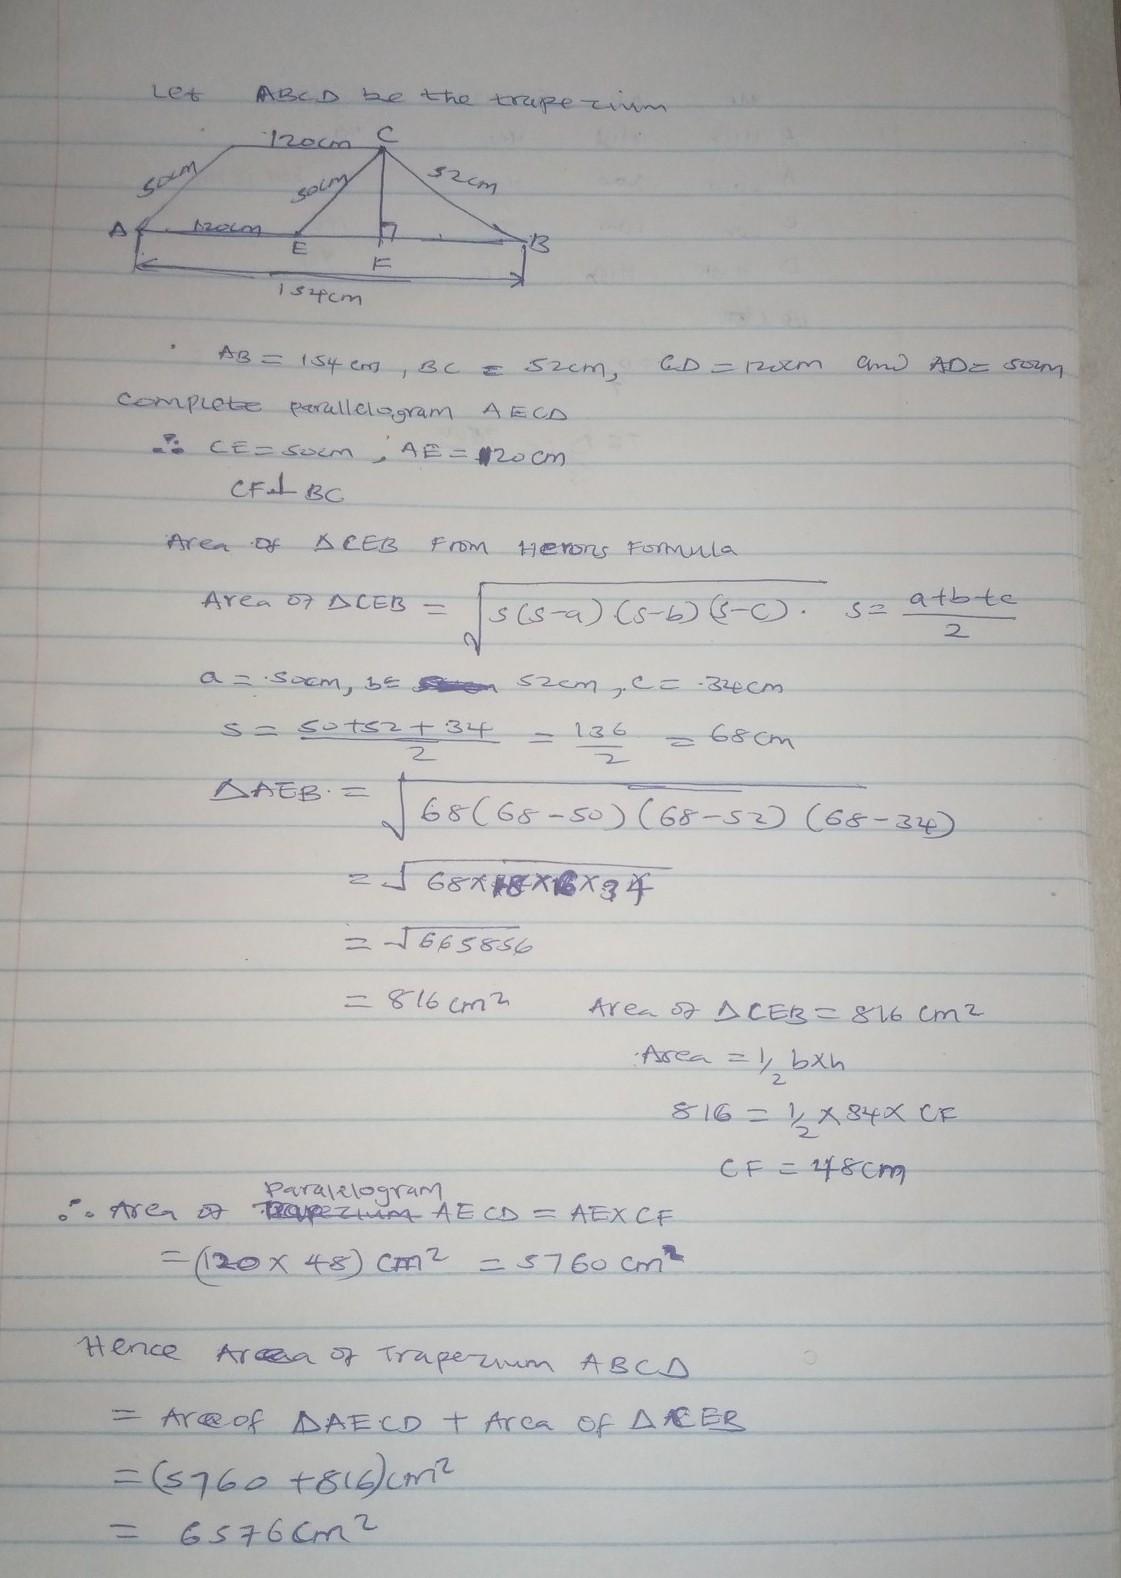 Let ABCD be the trapezium
120cm C
50cm 50cm 52cm
A 120cm E F B
154cm
AB = 154 cm, BC = 52cm, CD = 120cm and AD = 50cm
Complete parallelogram AECD
∴ CE = 50cm, AE = 120cm
CF ⊥ BC
Area of ΔCEB From Herons Formula
Area of ΔCEB = √s(s-a)(s-b)(s-c). s = a+b+c/2
a = 50cm, b = 52cm, c = 34cm
s = 50+52+34/2 = 136/2 = 68cm
ΔAEB = √68(68-50)(68-52)(68-34)
= √68×18×16×34
= √665856
= 816cm² Area of ΔCEB = 816 cm²
Area = 1/2 bxh
816 = 1/2 × 84 × CF
CF = 48cm
∴ Area of Paralelogram AECD = AE×CF
= (120 × 48) cm² = 5760 cm²
Hence Area of Trapezium ABCD
= Are of ΔAECD + Area of ΔCEB
= (5760 + 816)cm²
= 6576cm²